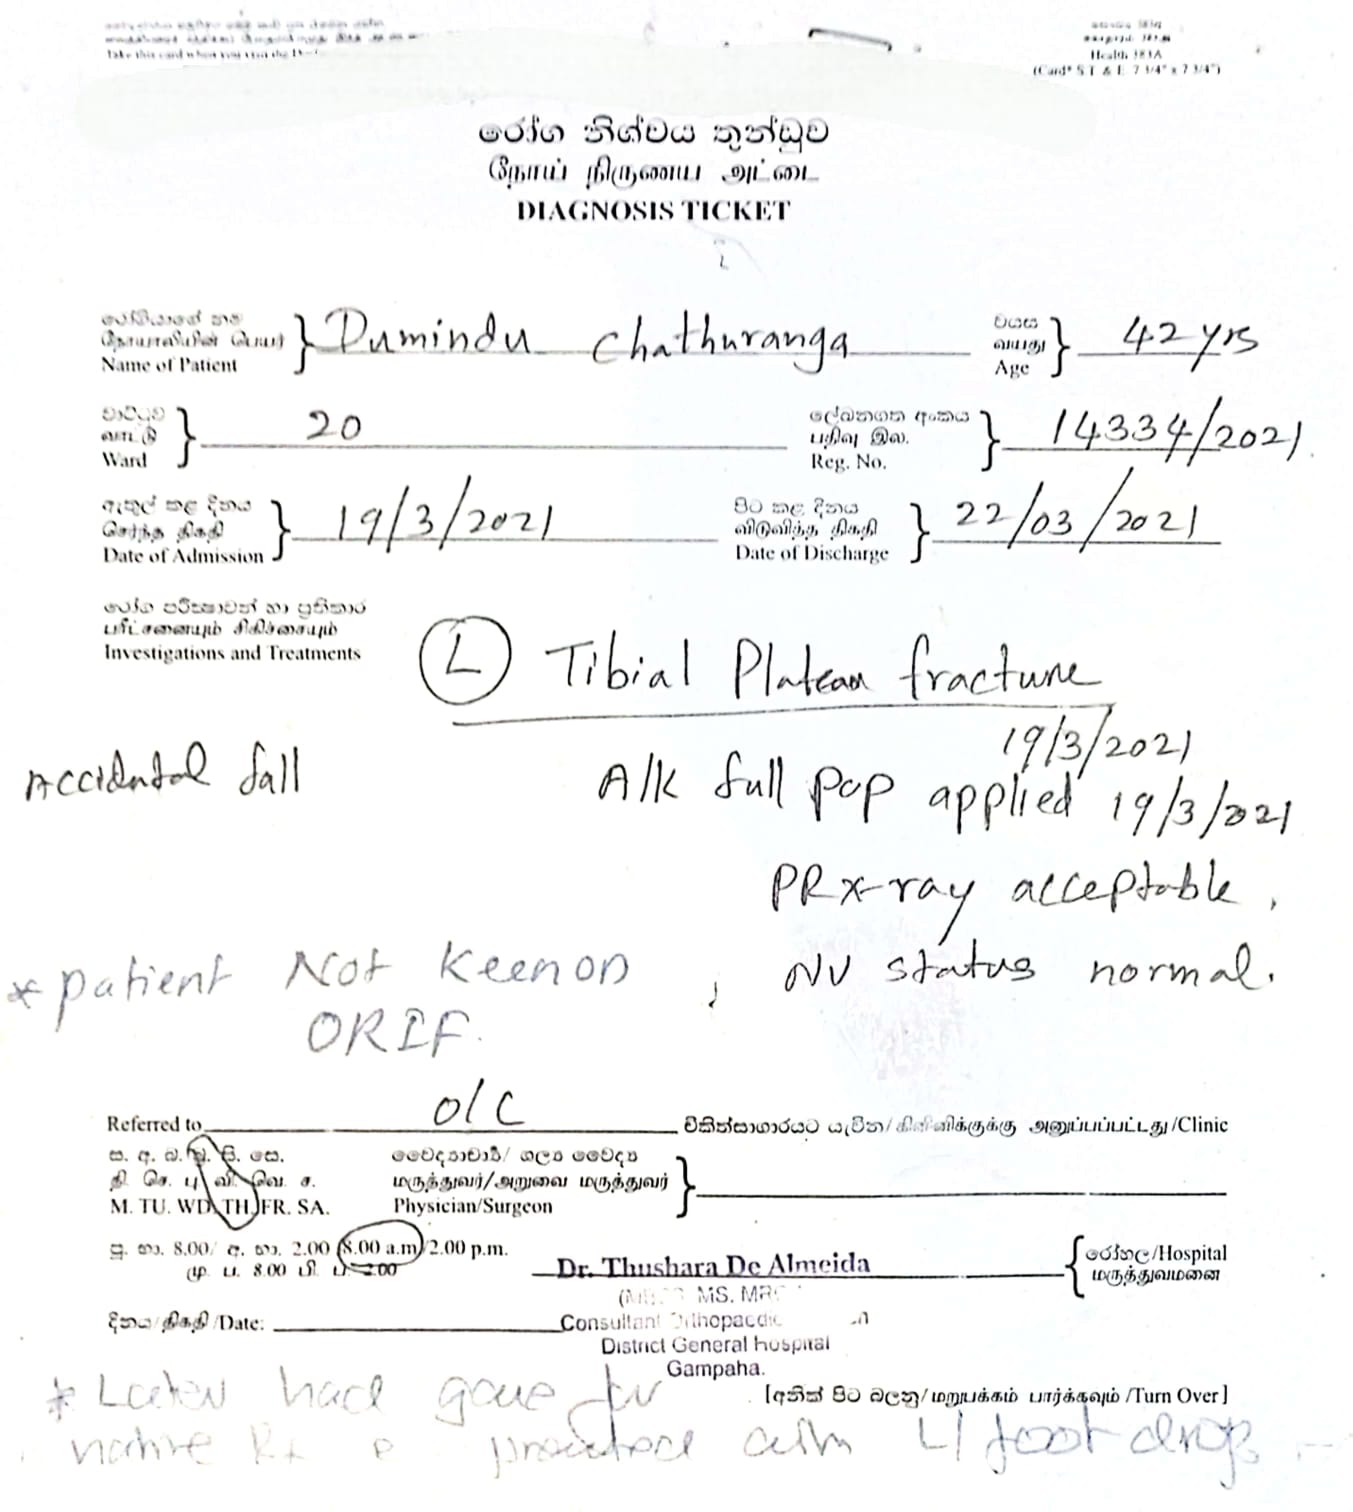 Take this card when you visit the
Health 383A
(Card* S.T. & E. 7 3/4" x 7 3/4")
රෝග නිශ්චය තුන්ඩුව
நோய் நிருணய அட்டை
DIAGNOSIS TICKET
රෝගියාගේ නම
நோயாளியின் பெயர்
Name of Patient } Dumindu Chathuranga
වයස
வயது
Age } 42 yrs
වාට්ටුව
வாட்டு
Ward } 20
ලේඛනගත අංකය
பதிவு இல.
Reg. No. } 14334/2021
ඇතුල් කළ දිනය
சேர்ந்த திகதி
Date of Admission } 19/3/2021
පිට කළ දිනය
விடுவித்த திகதி
Date of Discharge } 22/03/2021
රෝග පරීක්ෂාවන් හා ප්‍රතිකාර
பரீட்சனையும் சிகிச்சையும்
Investigations and Treatments
L Tibial Plateau fracture
19/3/2021
Accidental fall
A/K full pop applied 19/3/2021
PRx-ray acceptable,
NV status normal.
* patient Not Keen on
ORIF.
Referred to O/C චිකිත්සාගාරයට යැවින/கிளினிக்குக்கு அனுப்பப்பட்டது/Clinic
ස. අ. බ. බ්‍ර. සි. සෙ.
தி. செ. பு. வி. வெ. ச.
M. TU. WD. TH. FR. SA.
වෛද්‍යාචාර්ය/ ශල්‍ය වෛද්‍ය
மருத்துவர்/அறுவை மருத்துவர்
Physician/Surgeon
පූ. භා. 8.00/ අ. භා. 2.00 8.00 a.m/2.00 p.m.
மு. ப. 8.00 பி. ப. 2.00
Dr. Thushara De Almeida
රෝහල/Hospital
மருத்துவமனை
MS. MRC
දිනය/திகதி/Date:
Consultant Orthopaedic
District General hospital
Gampaha.
[අනික් පිට බලනු/மறுபக்கம் பார்க்கவும்/Turn Over]
* Later had gone for
native Rx foot drop